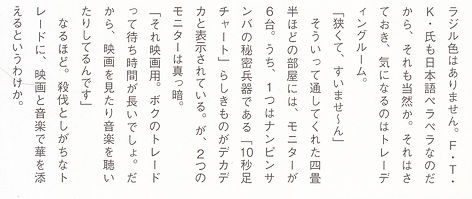 ラジル色はありません。F・T・
K・氏も日本語ペラペラなのだ
から、それも当然か。それはさ
ておき、気になるのはトレーデ
ィングルーム。
「狭くて、すいませ～ん」
そういって通してくれた四畳
半ほどの部屋には、モニターが
6台。うち、1つはナンピンサ
ンバの秘密兵器である「10秒足
チャート」らしきものがデカデ
カと表示されている。が、2つの
モニターは真っ暗。
「それ映画用。ボクのトレード
って待ち時間が長いでしょ。だ
から、映画を見たり音楽を聴い
たりしてるんです」
なるほど。殺伐としがちなト
レードに、映画と音楽で華を添
えるというわけか。